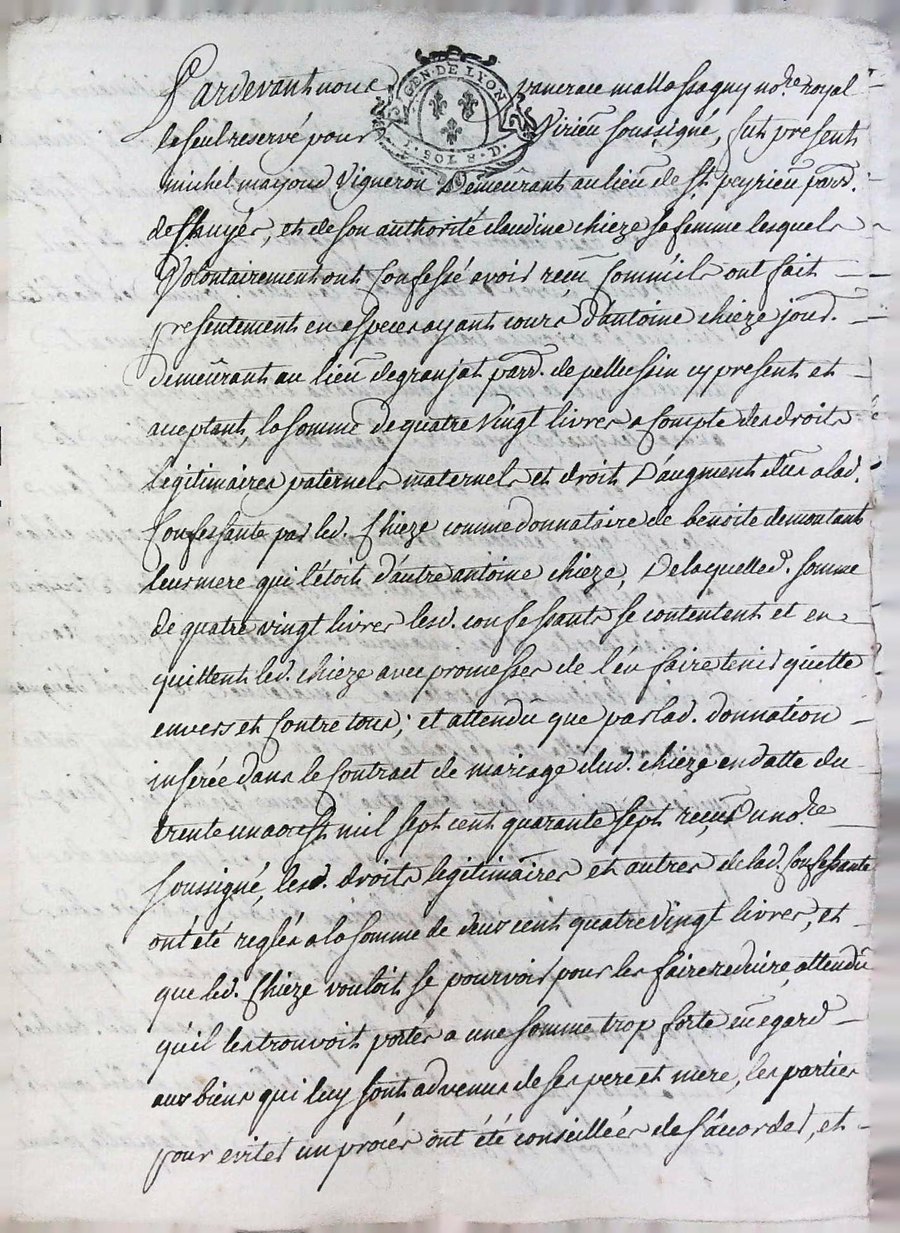 Pardevant nous vanerau mattassagny no.re royal
GEN. DE LYON
1. SOL 8. D.
le seul reservé pour Virieu soussigné, fut present
michel mayoud vigneron demeûrant au lieu de St peyrieu parr.
de Chuyer, et de son authorité claudine chieze sa femme lesquels
Volontairement ont Confessé avoir reçu Comm'ils ont fait
presentement en especes ayant cours d'antoine chieze jour.
demeûrant au lieu de granjat parr. de pellussin cy present et
aceptant, la somme de quatre vingt livres a Compte des droits
legitimaires paternels maternels et droit D'augment dûs a lad.
Confessante par led. Chieze comme donnataire de benoite demontant
leur mere qui l'étoit d'autre antoine chieze, De laquelle d. somme
de quatre vingt livres lesd. confessants se contentent et en
quittent led. chieze avec promesses de l'en faire tenir quitte
envers et Contre tous; et attendu que par lad. donnation
inserée dans le Contract de mariage dud. chieze en datte du
trente un aoust mil sept cent quarante sept reçu Du no.re
soussigné, lesd. droits legitimaires et autres de lad. Confessante
ont été reglés a la somme de deux cent quatre Vingt livres, et
que led. Chieze vouloit se pourvoir pour les faire reduire, attendu
qu'il les trouvoit portés a une somme trop forte eu egard
aux biens qui luy sont advenus de ses pere et mere, les parties
pour eviter un procés ont été conseillées de s'acorder, et